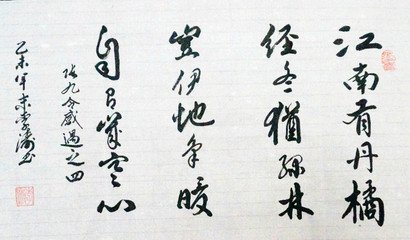 江南有丹橘
经冬猶绿林
岂伊地气暖
自有岁寒心
张九龄感遇之四
乙未年